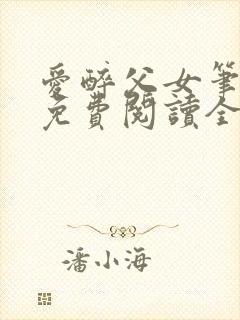 愛醉父女筆
免費閱讀全
潘小海